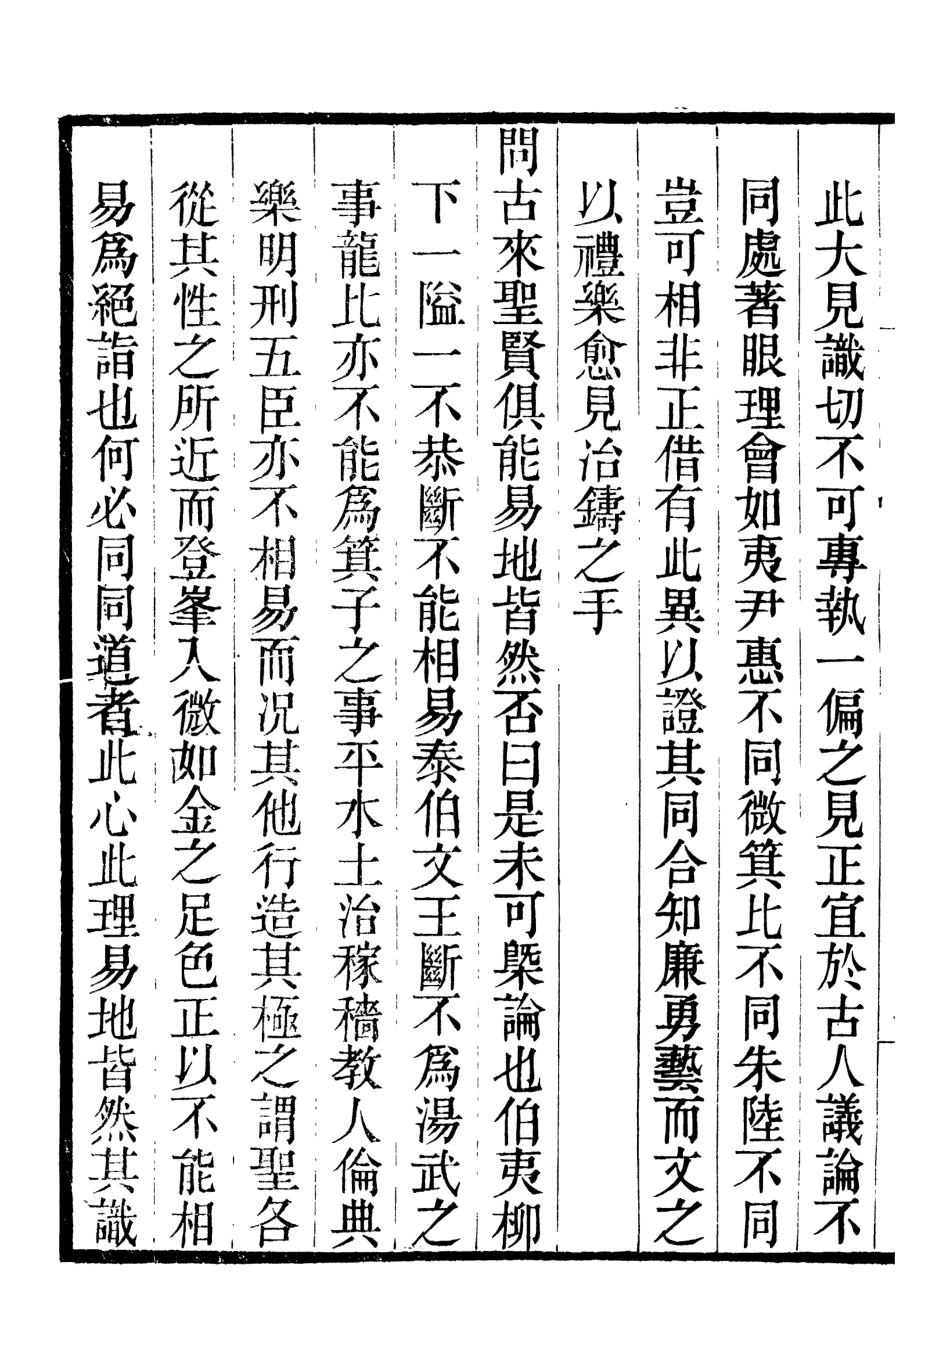 此大見識切不可專執一偏之見正宜於古人議論不
同處著眼理會如夷尹惠不同微箕比不同朱陸不同
豈可相非正借有此異以證其同合知廉勇藝而文之
以禮樂愈見冶鑄之手
問古來聖賢俱能易地皆然否曰是未可槩論也伯夷柳
下一隘一不恭斷不能相易泰伯文王斷不爲湯武之
事龍比亦不能爲箕子之事平水土治稼穡教人倫典
樂明刑五臣亦不相易而况其他行造其極之謂聖各
從其性之所近而登峯入微如金之足色正以不能相
易爲絕詣也何必同同道者此心此理易地皆然其識